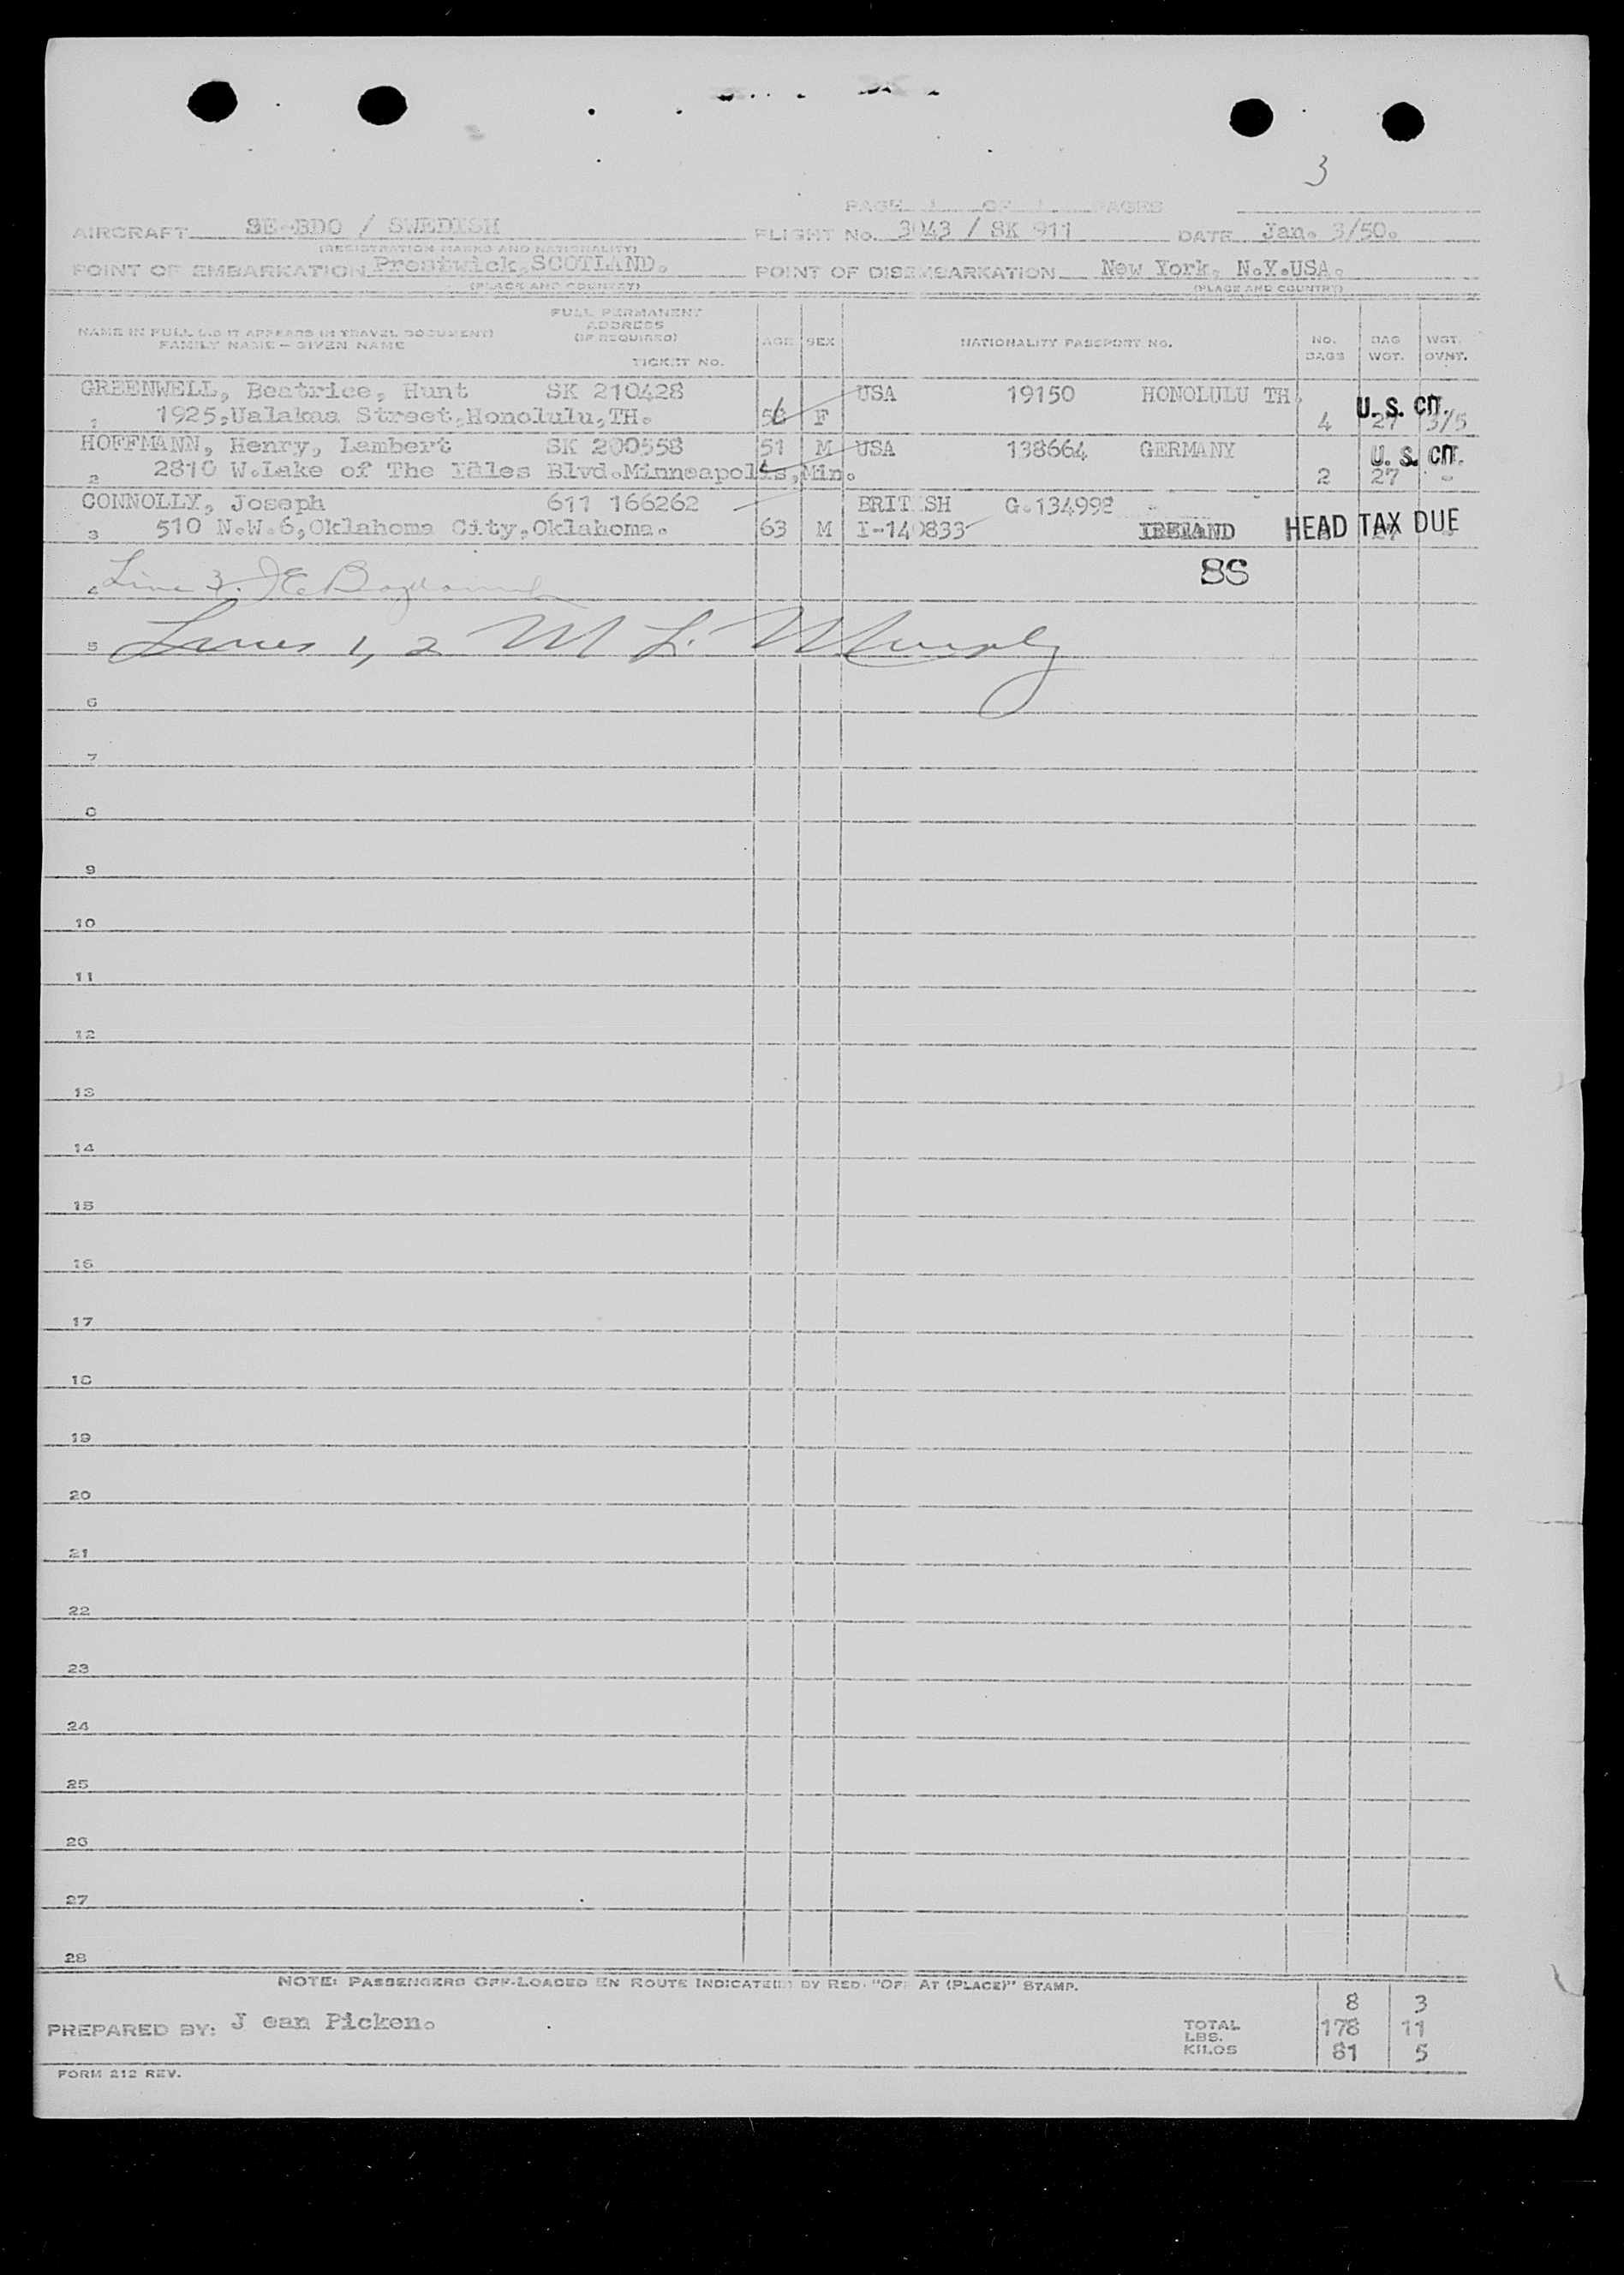 3
PAGE 1 OF 1 PAGES
AIRCRAFT SE-BDO / SWEDISH FLIGHT No. 3043 / SK 911 DATE Jan. 3/50.
(REGISTRATION MARKS AND NATIONALITY)
POINT OF EMBARKATION Prestwick,SCOTLAND. POINT OF DISEMBARKATION New York, N.Y.USA.
(PLACE AND COUNTRY) (PLACE AND COUNTRY)
NAME IN FULL (AS IT APPEARS IN TRAVEL DOCUMENT) FAMILY NAME — GIVEN NAME FULL PERMANENT ADDRESS (IF REQUIRED) TICKET NO. AGE SEX NATIONALITY PASSPORT NO. NO. BAGS BAG WGT. WGT. OVWT.
GREENWELL, Beatrice, Hunt SK 210428 USA 19150 HONOLULU TH. U.S. CIT.
1 1925,Ualakaa Street,Honolulu,TH. F 4 27 3/5
HOFFMANN, Henry, Lambert SK 200558 51 M USA 138664 GERMANY U. S. CIT.
2 2810 W.Lake of The Isles Blvd.Minneapolis,Min. 2 27 -
CONNOLLY, Joseph 611 166262 BRITISH G.134992
3 510 N.W.6,Oklahoma City,Oklahoma. 63 M I-140833 IRELAND HEAD TAX DUE
4 Line 3. 8S
5 Lines 1, 2 M L. Murphy
6
7
8
9
10
11
12
13
14
15
16
17
18
19
20
21
22
23
24
25
26
27
28
NOTE: PASSENGERS OFF-LOADED EN ROUTE INDICATED BY RED "OFF AT (PLACE)" STAMP.
8 3
PREPARED BY: J ean Picken. TOTAL LBS. 178 11
KILOS 81 5
FORM 212 REV.